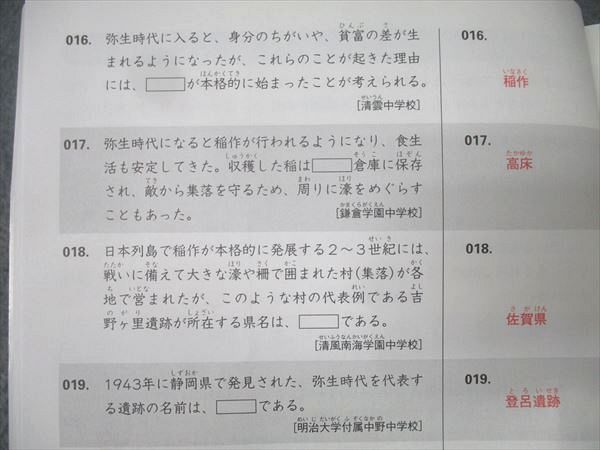 016. 弥生時代に入ると、身分のちがいや、貧富の差が生
まれるようになったが、これらのことが起きた理由
には、□が本格的に始まったことが考えられる。
[清雲中学校]
016.
稲作
017. 弥生時代になると稲作が行われるようになり、食生
活も安定してきた。収穫した稲は□倉庫に保存
され、敵から集落を守るため、周りに濠をめぐらす
こともあった。
[鎌倉学園中学校]
017.
高床
018. 日本列島で稲作が本格的に発展する2〜3世紀には、
戦いに備えて大きな濠や柵で囲まれた村(集落)が各
地で営まれたが、このような村の代表例である吉
野ヶ里遺跡が所在する県名は、□である。
[清風南海学園中学校]
018.
佐賀県
019. 1943年に静岡県で発見された、弥生時代を代表す
る遺跡の名前は、□である。
[明治大学付属中野中学校]
019.
登呂遺跡